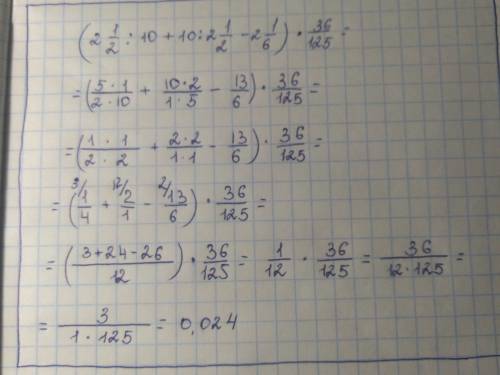 (2 1/2 : 10 + 10 : 2 1/2 − 2 1/6) · 36/125 =
= (5·1/2·10 + 10·2/1·5 − 13/6) · 36/125 =
= (1·1/2·2 + 2·2/1·1 − 13/6) · 36/125 =
= (3/ 1/4 + 12/ 2/1 − 2/ 13/6) · 36/125 =
= (3+24−26/12) · 36/125 = 1/12 · 36/125 = 36/12·125 =
= 3/1·125 = 0,024